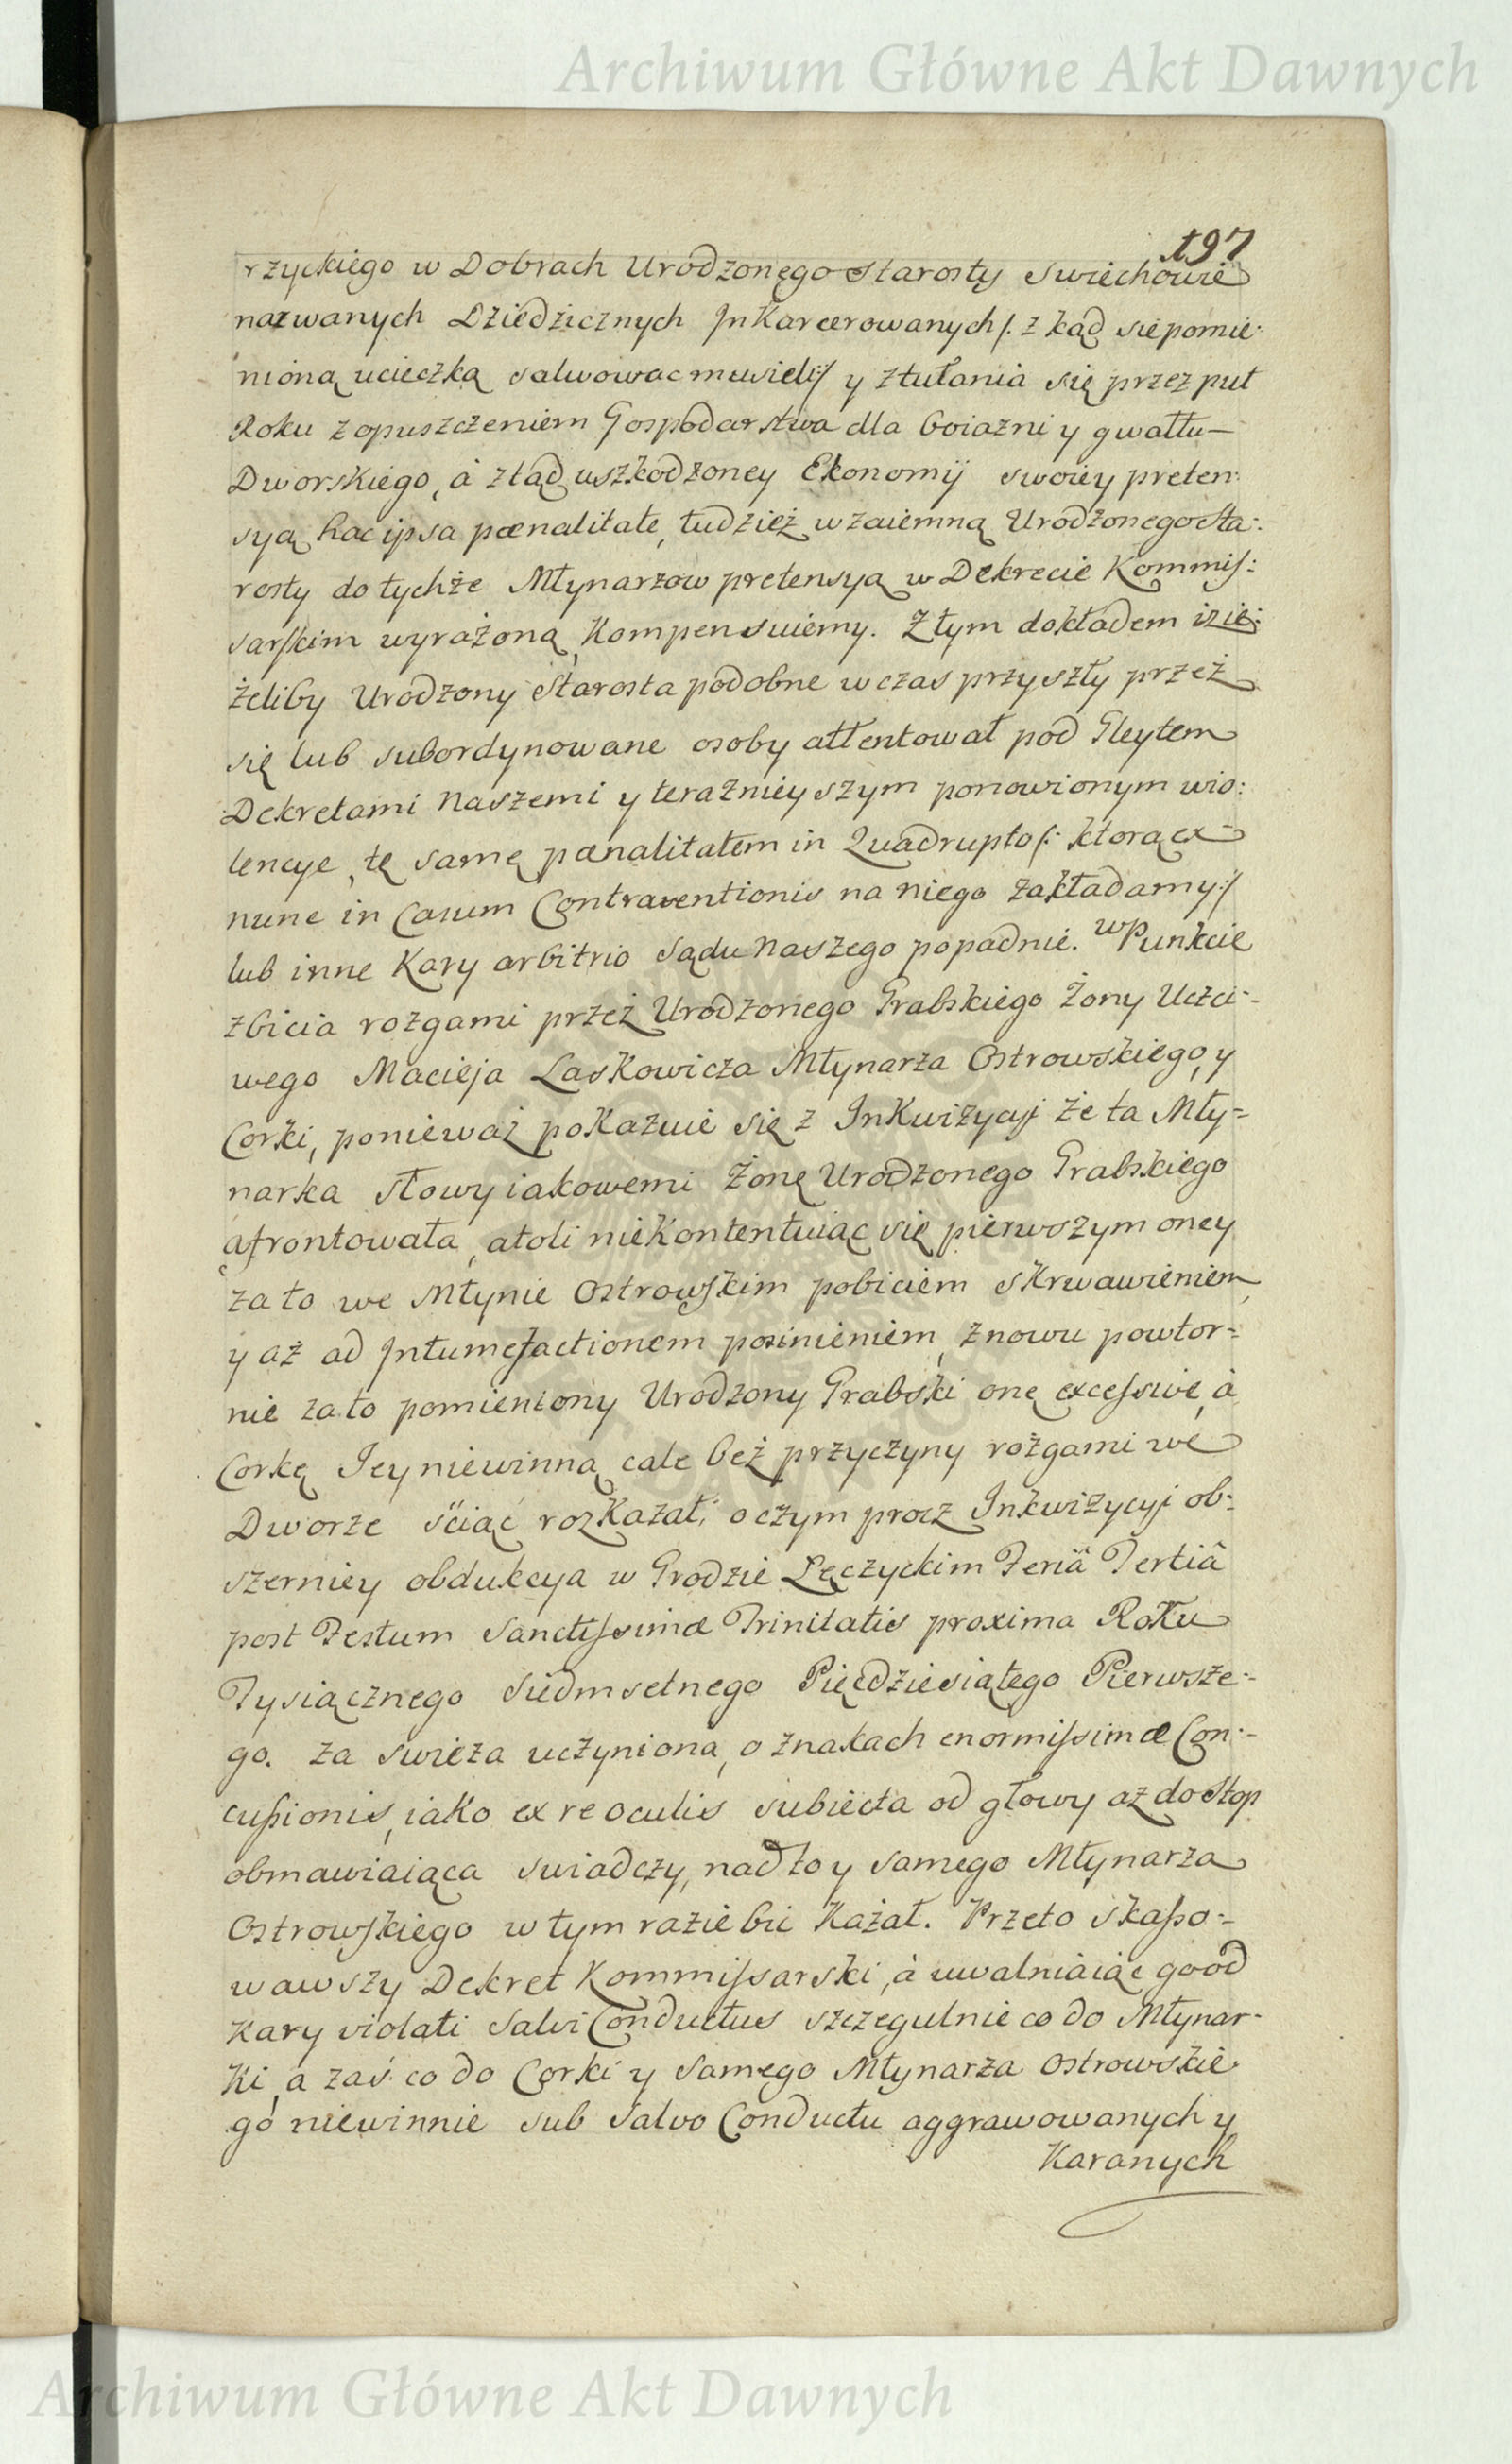 Archiwum Główne Akt Dawnych
197
rzyckiego w Dobrach Urodzonego Starosty Swiechowie
nazwanych Dziedzicznych Inkarcerowanych /: z kąd się pomie:
nioną ucieczką salwowac musieli :/ y ztułania się przez puł
Roku z opuszczeniem Gospodarstwa dla boiazni y gwałtu
Dworskiego, à ztąd uszkodzoney Ekonomij swoiey preten:
syą hac ipsa pœnalitate, tudzież wzaiemną Urodzonego Sta:
rosty do tychże Młynarzow pretensyą w Dekrecie Kommis:
sarskim wyrażoną, Kompensuiemy. Z tym dokładem izie:
żeliby Urodzony Starosta podobne w czas przyszły przez
się lub subordynowane osoby attentował pod Gleytem
Dekretami Naszemi y teraznieyszym ponowionym wio:
lencye, tę samę pœnalitatem in Quadruplo /: ktorą ex
nunc in Casum Contraventionis na niego zakładamy :/
lub inne Kary arbitrio Sądu Naszego popadnie. w Punkcie
zbicia rozgami przez Urodzonego Grabskiego Żony Uczci:
wego Macieja Laskowicza Młynarza Ostrowskiego, y
Corki, ponieważ pokazuie się z Inkwizycyi że ta Mły=
narka słowy iakowemi Żonę Urodzonego Grabskiego
afrontowała, atoli niekontentuiąc się pierwszym oney
za to we Młynie Ostrowskim pobiciem skrwawieniem,
y aż ad Intumefactionem posinieniem, znowu powtor=
nie za to pomieniony Urodzony Grabski onę excessive, à
Corkę Iey niewinną cale bez przyczyny rozgami we
Dworze sciąć rozkazał, o czym procz Inkwizycyi ob:
szerniey obdukcya w Grodzie Lęczyckim Feriâ Tertiâ
post Festum Sanctissimæ Trinitatis proxima Roku
Tysiącznego Siedmsetnego Pięćdziesiątego Pierwsze:
go. za swieża uczyniona, o znakach enormissimæ Con:
cussionis, iako ex re oculis subiecta od głowy aż do Stop
obmawiaiąca swiadczy, nadto y samego Młynarza
Ostrowskiego w tym razie bic kazał. Przeto skasso:
wawszy Dekret Kommissarski, à uwalniaiąc go od
Kary violati Salvi Conductus szczegulnie co do Młynar:
ki, a zaś co do Corki y samego Młynarza Ostrowskie
go niewinnie sub Salvo Conductu aggrawowanych y
Karanych
Archiwum Główne Akt Dawnych